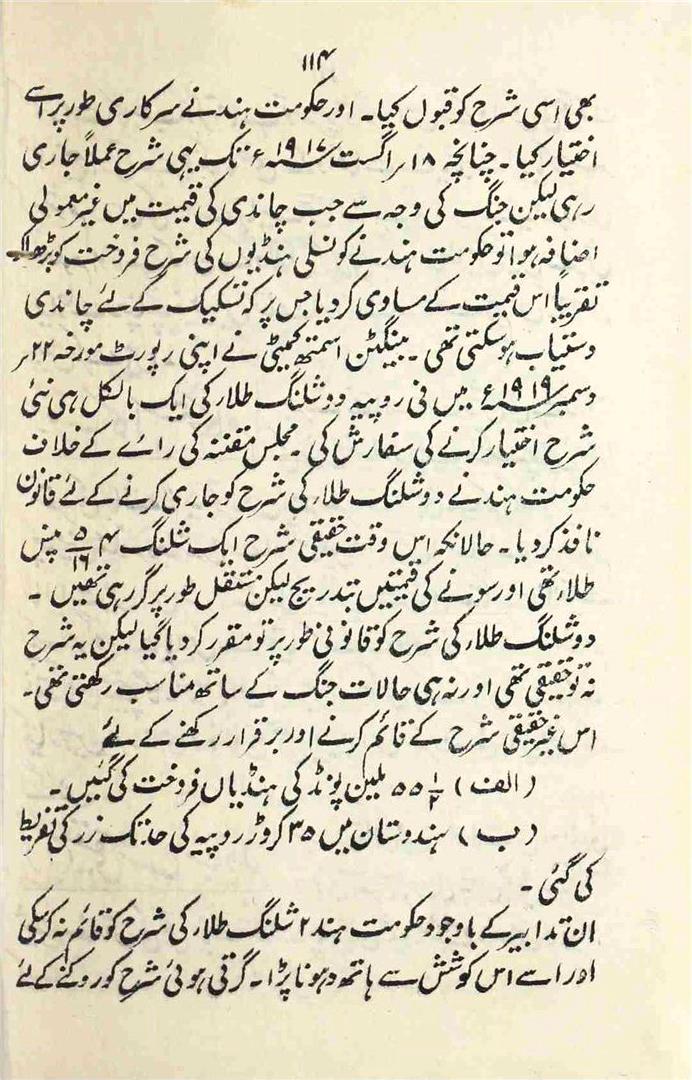 ۱۱۴
بھی اسی شرح کو قبول کیا۔ اور حکومت ہند نے سرکاری طور پر اسے
اختیار کیا۔ چنانچہ ۱۸؍ اگست ۱۹۱۷ء تک یہی شرح عملاً جاری
رہی لیکن جنگ کی وجہ سے جب چاندی کی قیمت میں غیر معمولی
اضافہ ہوا تو حکومت ہند نے کونسلی ہنڈیوں کی شرح فروخت کو بڑھا کے
تقریباً اس قیمت کے مساوی کر دیا جس پر کہ تسکیک کے لئے چاندی
دستیاب ہو سکتی تھی۔ بینگٹن اسمتھ کمیٹی نے اپنی رپورٹ مورخہ ۲۲؍
دسمبر ۱۹۱۹ء میں فی روپیہ دو شلنگ طلاء کی ایک بالکل ہی نئی
شرح اختیار کرنے کی سفارش کی۔ مجلس مقننہ کی رائے کے خلاف
حکومت ہند نے دو شلنگ طلاء کی شرح کو جاری کرنے کے لئے قانون
نافذ کر دیا۔ حالانکہ اس وقت حقیقی شرح ایک شلنگ ۴ ۵/۱۶ پنس
طلاء تھی اور سونے کی قیمتیں بتدریج لیکن مستقل طور پر گر رہی تھیں۔
دو شلنگ طلاء کی شرح کو قانونی طور پر تو مقرر کر دیا گیا لیکن یہ شرح
نہ تو حقیقی تھی اور نہ ہی حالات جنگ کے ساتھ مناسب رکھتی تھی۔
اس غیر حقیقی شرح کے قائم کرنے اور برقرار رکھنے کے لئے
(الف) ۵۵ ۱/۲ ملین پونڈ کی ہنڈیاں فروخت کی گئیں۔
(ب) ہندوستان میں ۳۵ کروڑ روپیہ کی حد تک زر کی تفریط
کی گئی۔
ان تدابیر کے باوجود حکومت ہند ۲ شلنگ طلاء کی شرح کو قائم نہ کر سکی
اور اسے اس کوشش سے ہاتھ دھونا پڑا۔ گرتی ہوئی شرح کو روکنے کے لئے